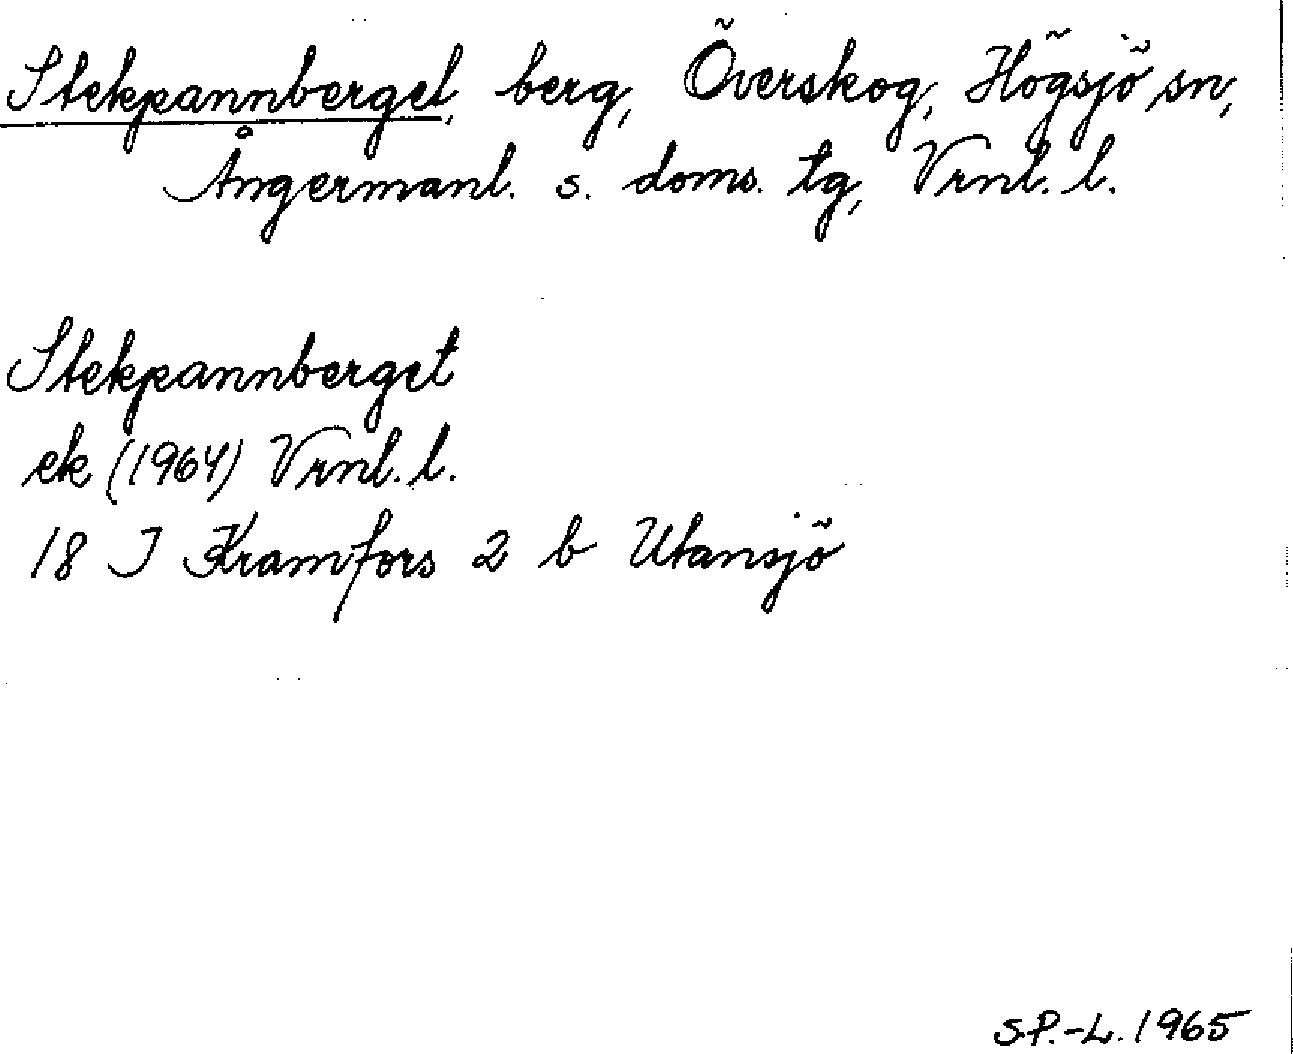 Stekpannberget, berg, Överskog, Högsjö sn,
Ångermanl. s. doms. tg, Vrnl. l.
Stekpannberget
ek (1964) Vrnl. l.
18 I Kramfors 2 b Utansjö
S.P.-L. 1965